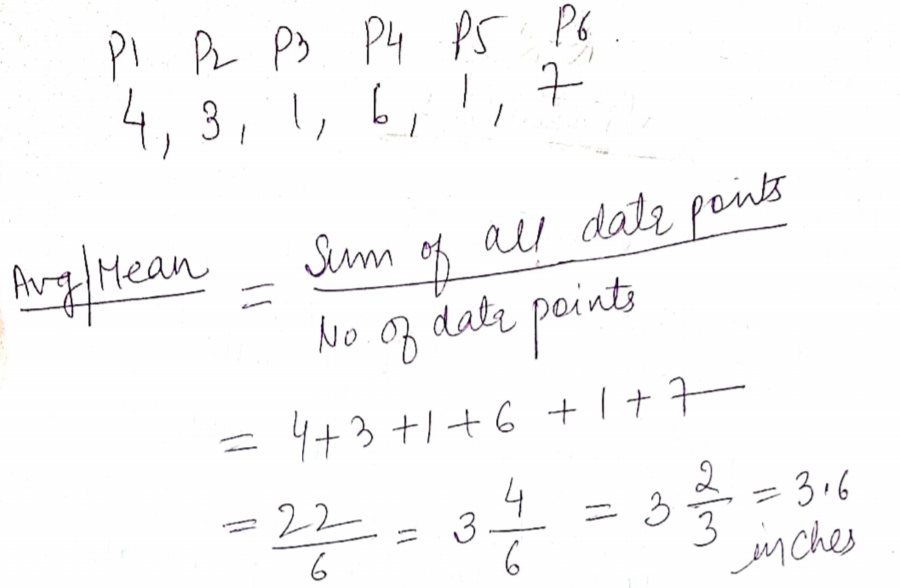 P1 P2 P3 P4 P5 P6.
4, 3, 1, 6, 1, 7
Avg/Mean = Sum of all data points / No of data points
= 4+3+1+6+1+7
= 22/6 = 3 4/6 = 3 2/3 = 3.6
inches